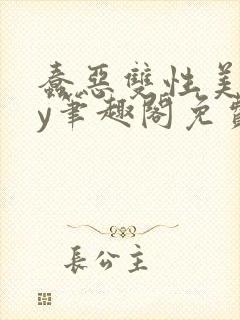 蠢惡雙性美
y筆趣閣免費
長公主